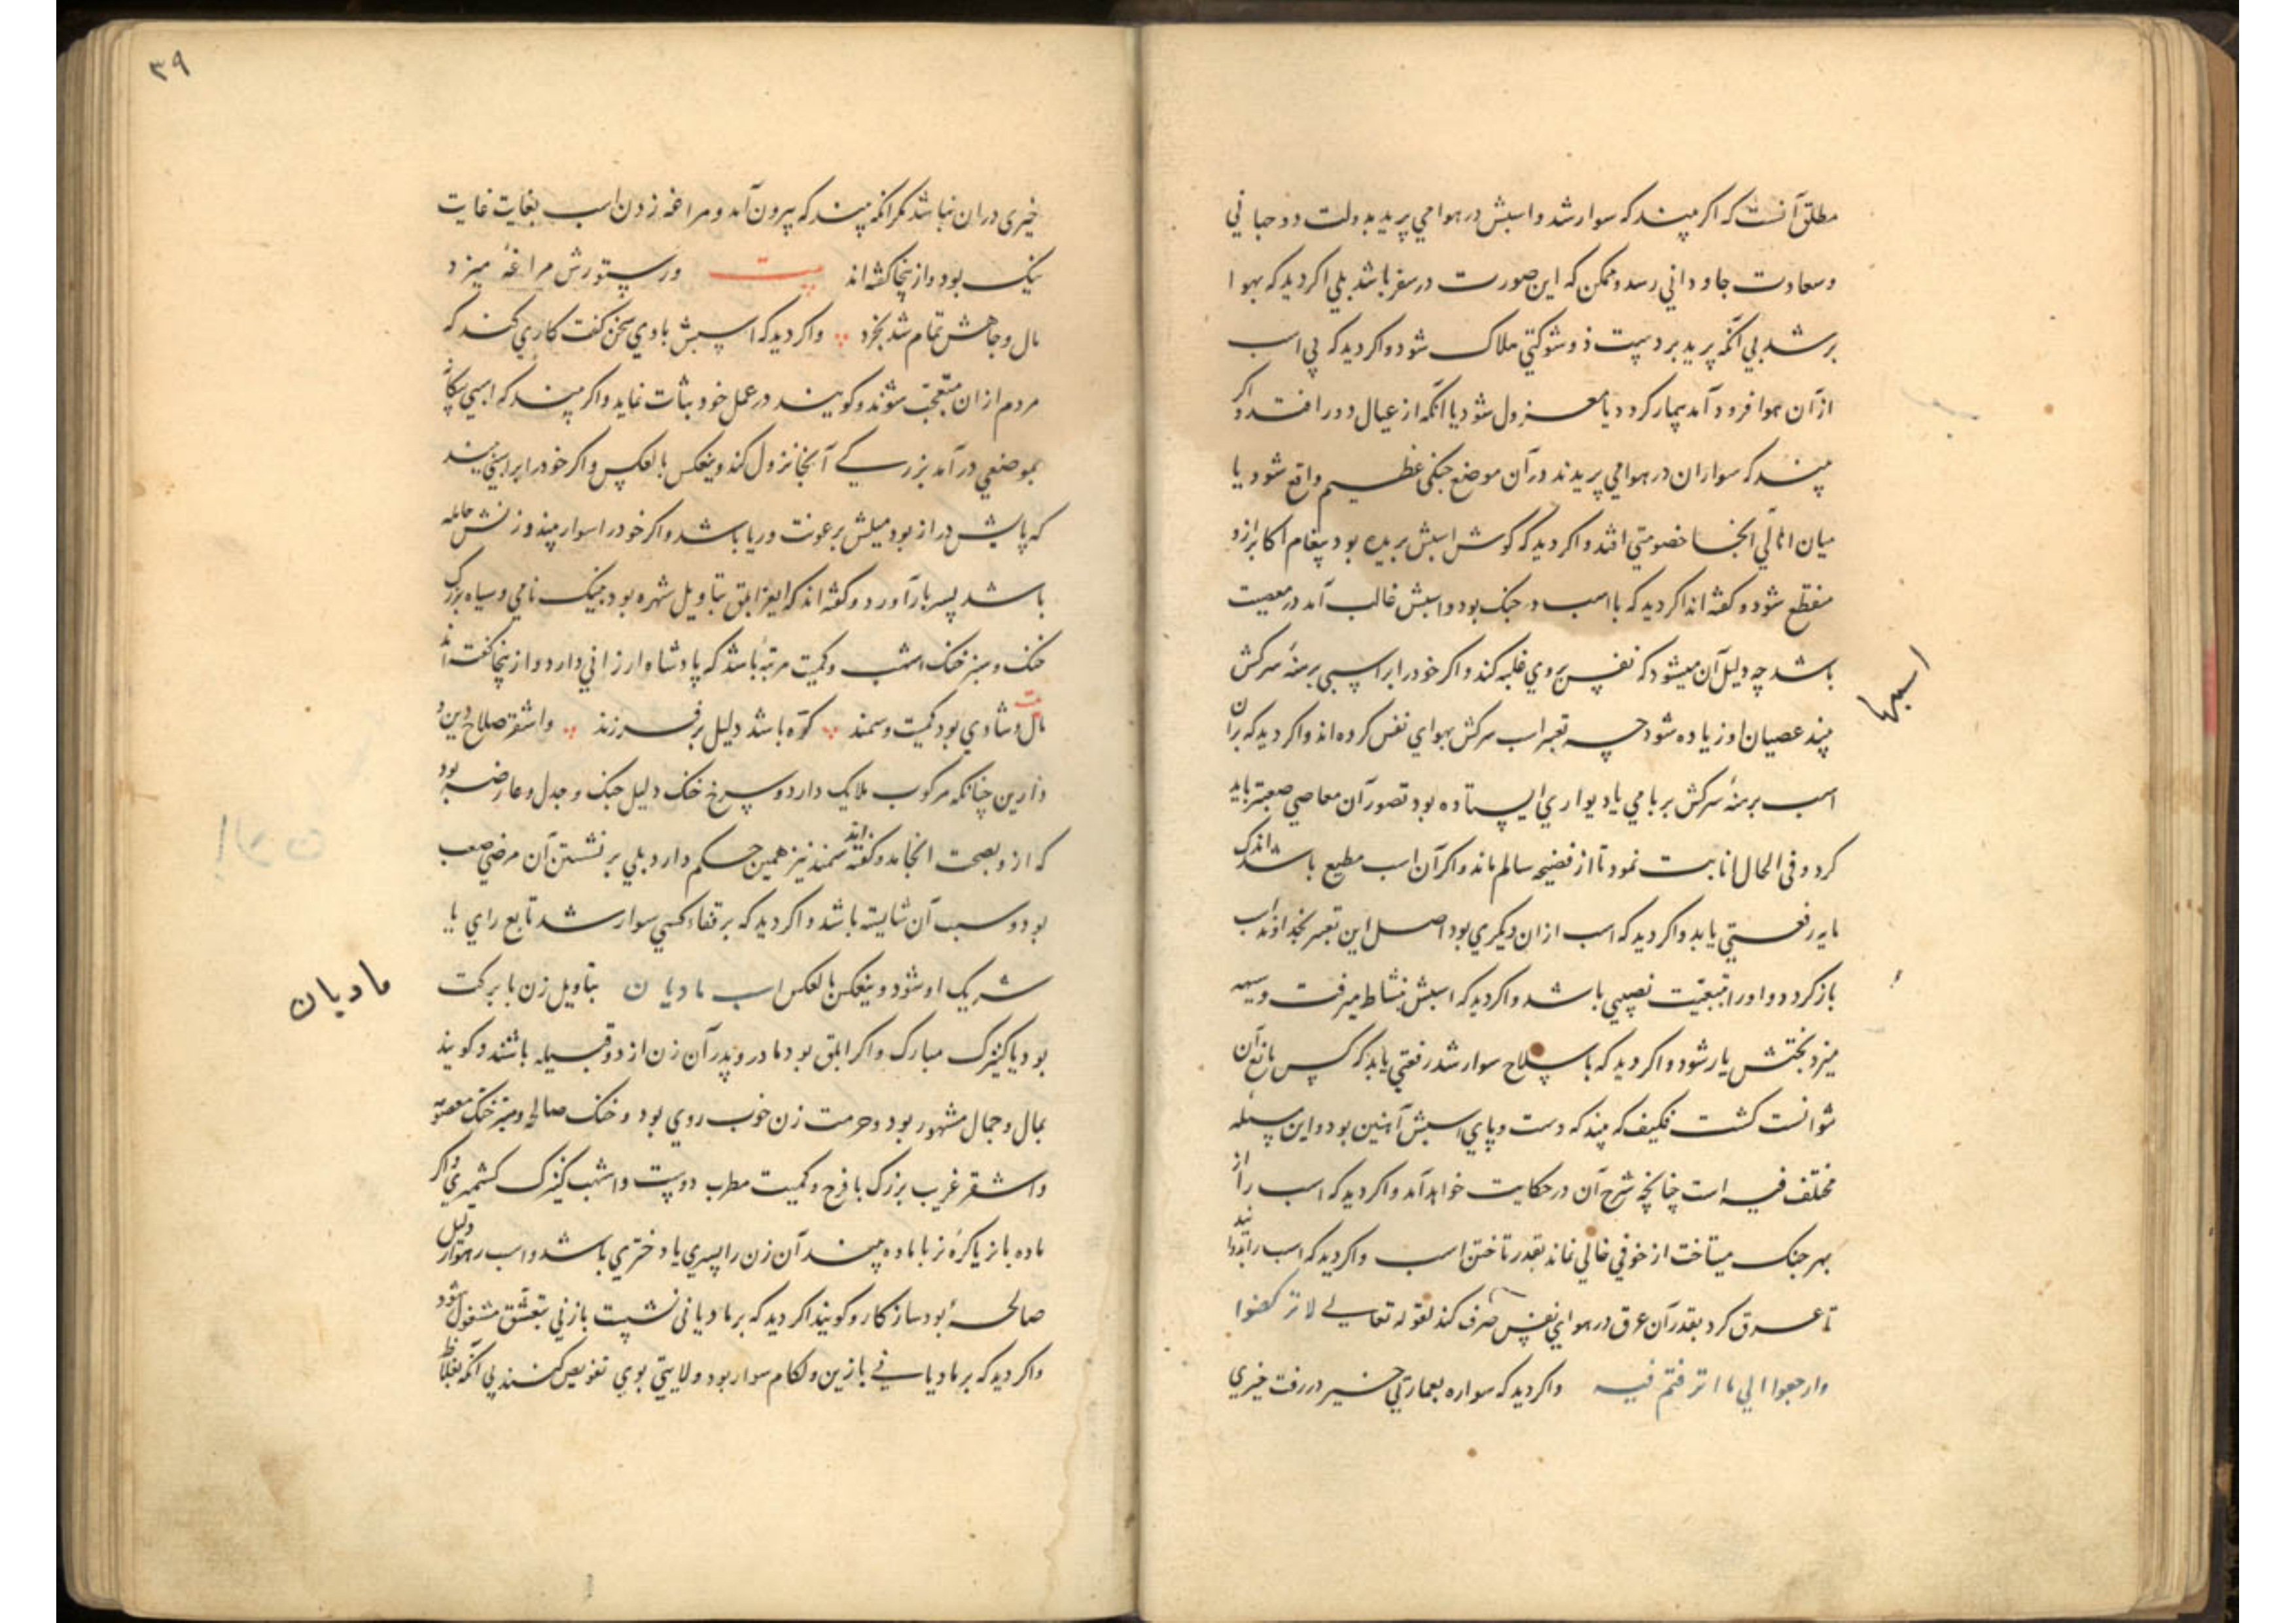 مطلق آنست که اکر بیند که سوار شد و اسبش در هوا می پرید بدولت دوجهانی
و سعادت جاودانی رسد و ممکن که این صورت در سفر باشد بلی اکر دید که بهوا
بر شد بی آنکه پرید بر دست ذو شوکتی هلاک شود و اکر دید که بی اسب
از آن هوا فرود آمد بیمار کردد یا معزول شود یا آنکه از عیال دور افتد و اکر
بیند که سواران در هوا می پریدند در آن موضع جنکی عظیم واقع شود یا
میان اهالی آنجا خصومتی افتد و اکر دید که کوش اسبش بریده بود پیغام اکابر ازو
منقطع شود و کفته اند اکر دید که با اسب در جنک بود و اسبش غالب آمد در معصیت
باشد چه دلیل آن میشود که نفس بروی غلبه کند و اکر خود را بر اسبی برهنۀ سرکش
بیند عصیان او زیاده شود چه تعبیر اسب سرکش بهوای نفس کرده اند و اکر دید که بران
اسب برهنۀ سرکش بر بامی یا دیواری ایستاده بود تصور آن معاصی صعبتر باید
کرد و فی الحال انابت نمود تا از فضیحه سالم ماند و اکر آن اسب مطیع باشد اندک
مایه رفعتی یابد و اکر دید که اسب ازان دیکری بود اصل این تعبیر بخداوند اسب
باز کردد و او را بتبعیّت نصیبی باشد و اکر دید که اسبش بنشاط میرفت و سیهه
میزد بختش یار شود و اکر دید که با سلاح سوار شد رفعتی یابد که کس مانع آن
نتوانست کشت فکیف که بیند که دست و پای اسبش آهنین بود و این مسئله
مختلف فیه است چنانچه شرح آن در حکایت خواهد آمد و اکر دید که اسب را از
بهر جنک میتاخت از خوفی خالی نماند بقدر تاختن اسب و اکر دید که اسب را
تا عرق کرد بقدر آن عرق در هوای نفس صرف کند لقوله تعالی لا ترکضوا
وارجعوا الی ما اترفتم فیه و اکر دید که سواره بعمارتی در رفت خیری
اسبها
۳۹
خیری دران نباشد مکر آنکه بیند که بیرون آمد و مراغه زدن اسب بغایت غایت
نیک بود و از ینجا کفته اند بیت ور ستورش مراغۀ میزد
مال و جاهش تمام شد بخرد و اکر دید که اسبش با وی سخن کفت کاری کند که
مردم ازان متعجّب شوند و کویند در عمل خود ثبات نماید و اکر بیند که اسبی بیکانه
بموضعی در آمد بزرکی آنجا نزول کند و ینعکس بالعکس و اکر خود را بر اسبی بیند
که پایش دراز بود میلش برعونت و ریا باشد و اکر خود را سوار بیند و زنش حامله
باشد پسر بار آورد و کفته اند که ابلق بتاویل شهره بود جنک نامی و سیاه بزرک
خنک و سبز خنک اشهب و کمیت مرتبۀ باشد که پادشاه ارزانی دارد و از ینجا کفته اند
بیت
مال و شادی بود کمیت و سمند کرّه باشد دلیل بر فرزند و اشقر صلاح دین و
دارین چنانکه مرکوب ملایک دارد و سرخ خنک دلیل جنک و جدل و عارضه بود
که ازو بصحت انجامد و کفته اند سمند نیز همین حکم دارد بلی بر نشستن آن مرضی صعب
بود و سبب آن شایسته باشد و اکر دید که بر قفاء کسی سوار شد تابع رای یا
شریک او شود و ینعکس بالعکس اسب مادیان بتاویل زن با برکت
بود یا کنیزک مبارک و اکر ابلق بود مادر و پدر آن زن از دو قبیله باشند و کویند
بمال و جمال مشهور بود و حرمت زن خوب روی بود و خنک صالحه و سبز خنک معصومه
و اشقر غریب بزرک با فرح و کمیت مطرب دوست و اشهب کنیزک کشمیری و اکر
ماده با نر یا کرۀ نر با ماده بیند آن زن را پسری یا دختری باشد و اسب رهوار دلیل
صالحۀ بود سازکار و کویند اکر دید که بر مادیانی نشست با زنی بتعشق مشغول شود
و اکر دید که بر مادیانی با زین و لکام سوار بود ولایتی بوی تفویض کنند بی آنکه
مادیان